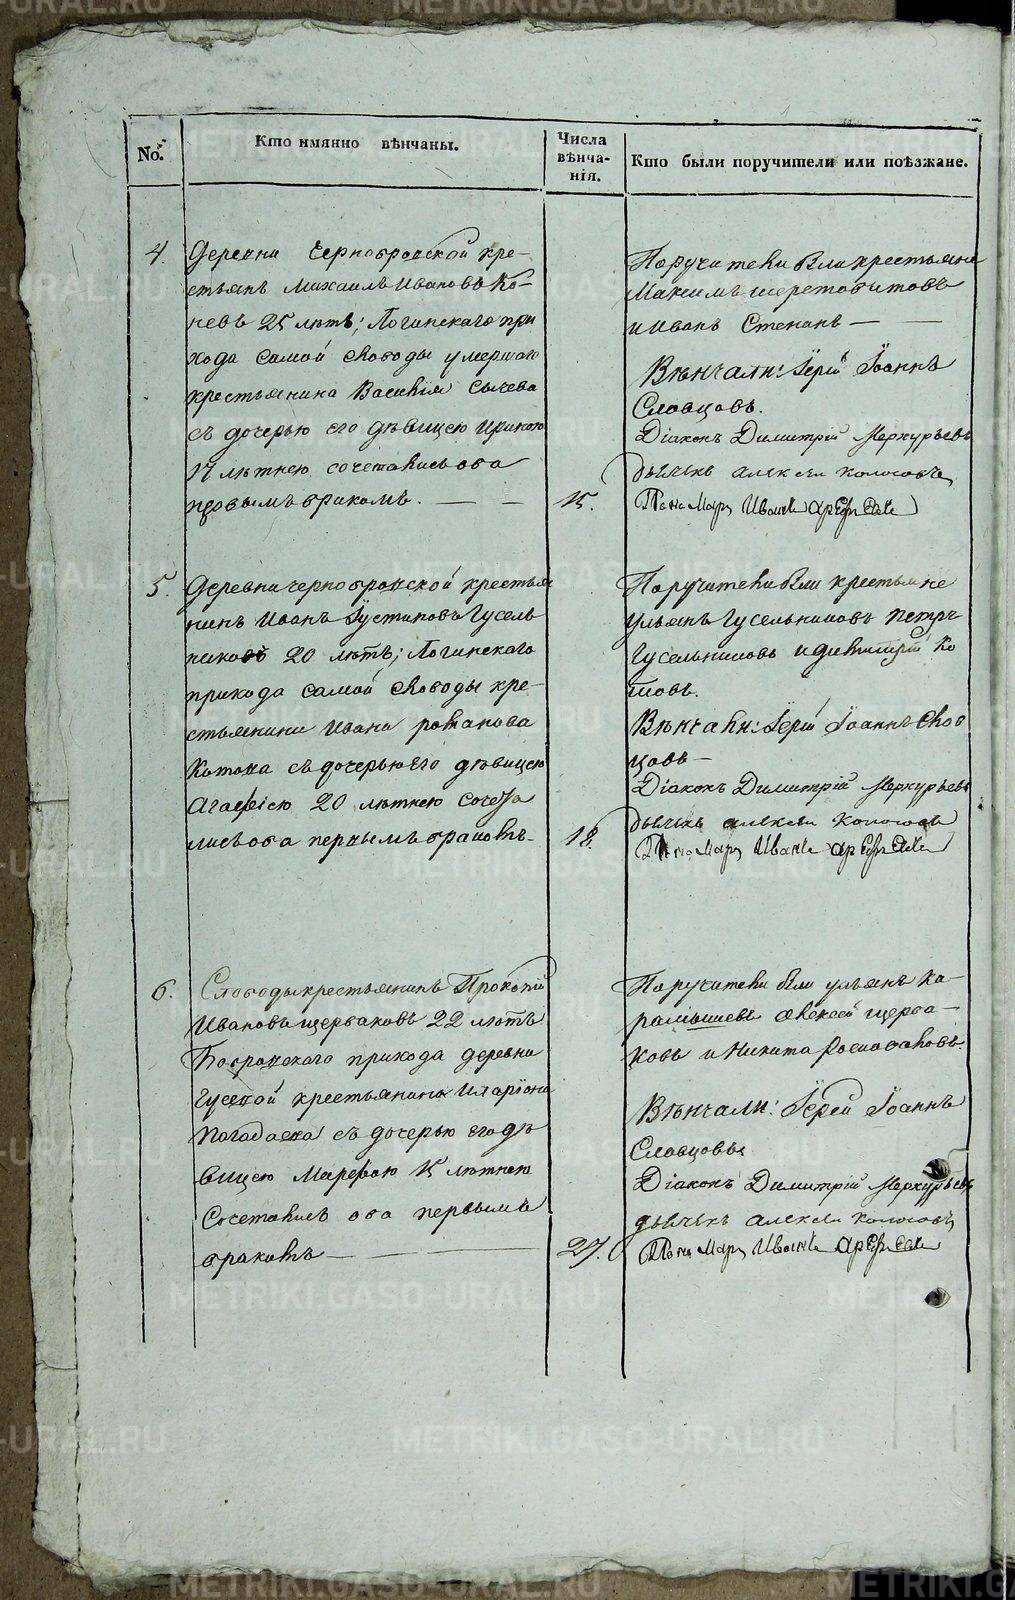 No.
Кто имянно вѣнчаны.
Числа
вѣнча-
нія.
Кто были поручители или поѣзжане.
4.
Деревни Чернобровской кре-
стьянъ Михаилъ Ивановъ Ко-
невъ 25 лѣтъ; Логинскаго при
хода самой слободы умершаго
крестьянина Василія Сычева
съ дочерью его дѣвицею Ириною
17 лѣтнею сочетались оба
первымъ бракомъ.
15.
Поручители были крестьяне
Максимъ
и Иванъ
Вѣнчали: Іерей Іоаннъ
Словцовъ.
Діаконъ Димитрій Меркурьевъ
дьячекъ алексеи колосовъ
Пономарь Иванъ Арефьевъ
5.
Деревни чернобровской крестья
нинъ Иванъ Іустиновъ Гусель
никовъ 20 лѣтъ; Логинскаго
прихода самой слободы кре-
стьянина Ивана романова
съ дочерью его дѣвицею
Агафіею 20 лѣтнею сочета
лись оба первымъ бракомъ.
18.
Поручители были крестьяне
ульянъ Гусельниковъ петръ
Гусельниковъ и димитрій Ко
товъ.
Вѣнчали: Іерей Іоаннъ Слов
цовъ
Діаконъ Димитрій Меркурьевъ
дьячекъ алексеи Колосовъ
Пономарь Иванъ Арефьевъ
6.
Слободы крестьянинъ Прокопій
Ивановъ щербаковъ 22 лѣтъ
прихода деревни
Гусевой крестьянина Иларіона
съ дочерью его дѣ
вицею Марѳою 15 лѣтнею
Сочетались оба первымъ
бракомъ
27.
Поручители были ульянъ Ка-
рамышевъ Алексей щерба-
ковъ и Никита
Вѣнчали: Іерей Іоаннъ
Словцовъ
Діаконъ Димитрій Меркурьевъ
дьячекъ алексеи колосовъ
Пономарь Иванъ Арефьевъ
METRIKI.GASO-URAL.RU